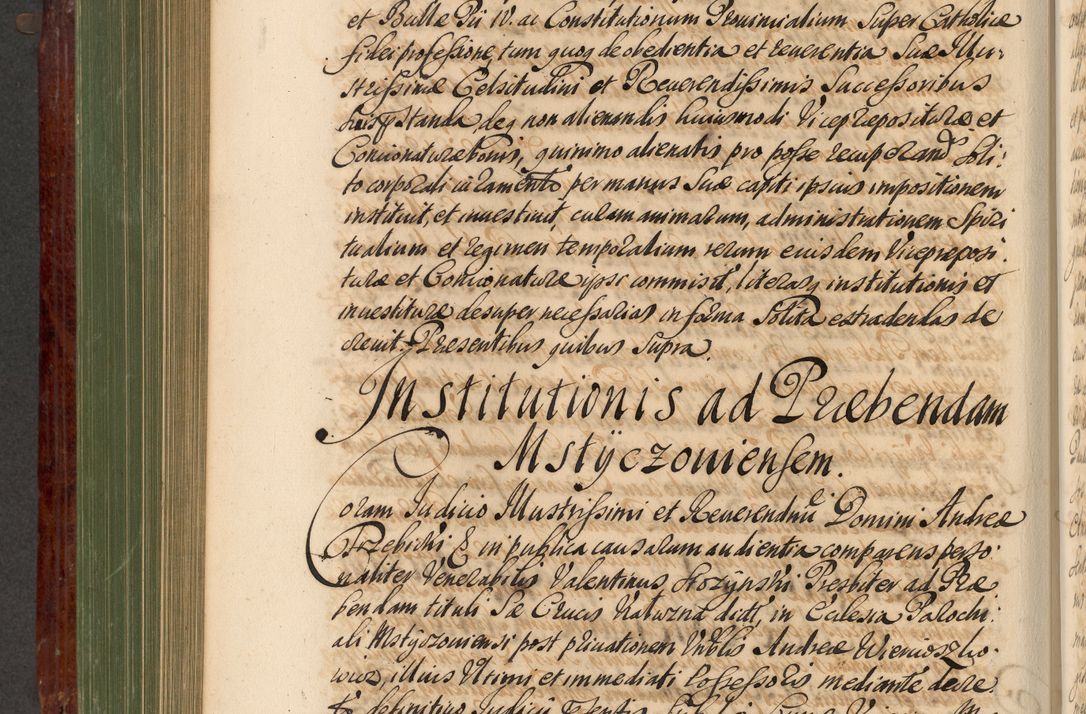 et Bullæ Pii IV. ac Constitutionum Prouincialium Super Catholicæ
fidei professione, tum quoq de obedientia et reuerentia Suæ Illu-
strissimæ Celsitudini et Reuerendissimis Successoribus
suis pstanda, deq non alienandis huiusmodi Vicepræpositurae et
Concionaturæ bonis, quinimo alienatis pro posse recuperand. Soli-
to corporali iuramento per manus Suæ capiti ipsius impositionem
instituit, et inuestiuit, curam animarum, administrationem Spiri
tualium et regimen temporalium rerum eiusdem Vicepræposi-
turæ et Concionaturæ ipsi commisit, literasq institutionis et
inuestituræ desuper necessarias in forma Solita extradendas de
creuit. Præsentibus quibus supra.
Institutionis ad Præbendam
Mstÿczouiensem.
Coram Judicio Illustrissimi et Reuerendmi Domini Andreæ
Trzebicki & in publica causarum audientia comparens perso-
naliter Venerabilis Valentinus Presbiter ad Præ
bendam tituli Sæ Crucis dict, in Ecclesia Parochi-
ali Mstyczouiensi post priuationem Vnblis Andreæ
illius Vltimi et immediati Possessoris mediante Decre-
to definitiuo Judicii